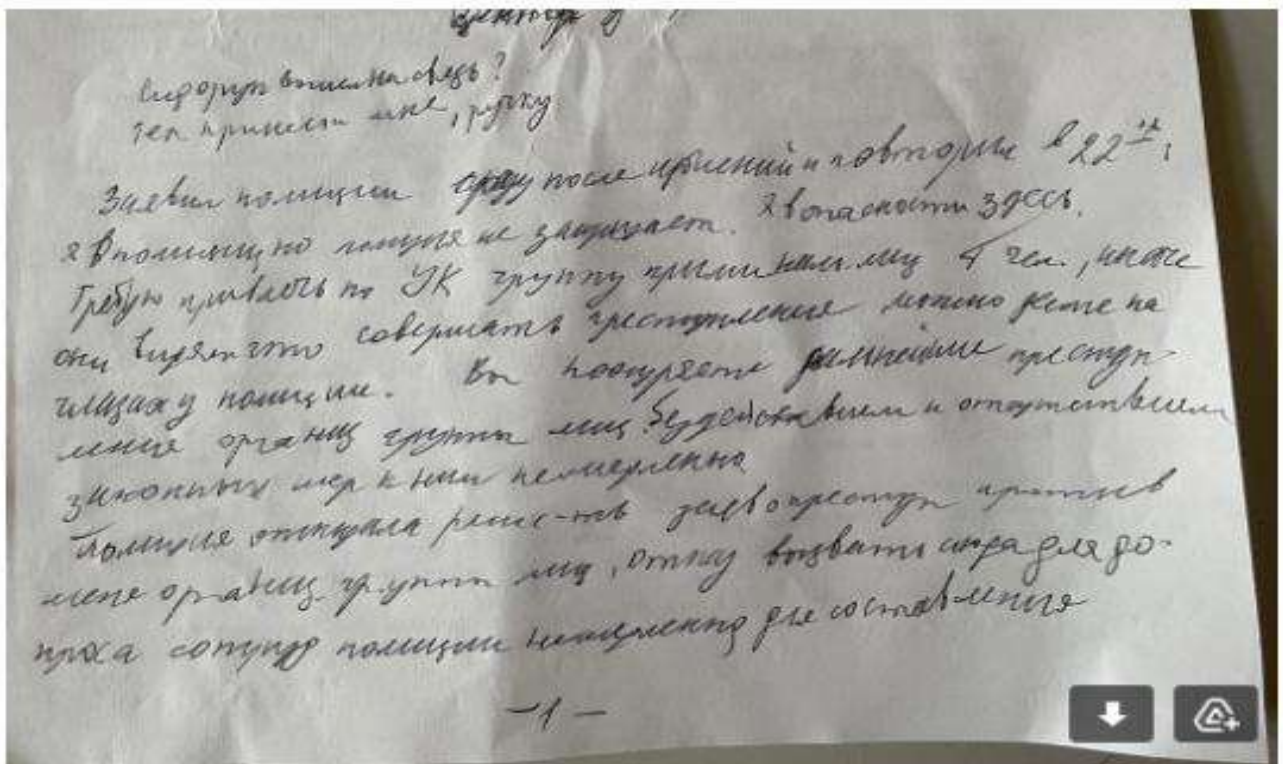 вышел на связь?
принести мне, ручку
Заявил полиции сразу после избиений и повторил в 22
я в полицию но полиция не защищает. Я в опасности здесь.
Требую привлечь по УК группу криминальн. лиц 4 чел., иначе
они видят что совершать преступления можно даже на
глазах у полиции. Вы поощряете дальнейшие преступ-
ления организ группы лиц бездействием и отсутствием
законных мер к ним немедленно
Полиция отказала заяв о преступ против
меня организ. группы лиц, отказ вызвать сюда для до-
проса сотруд полиции немедленно для составления
-1-